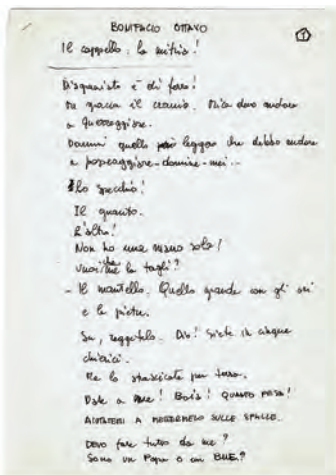 BONIFACIO OTTAVO
1
Il cappello. la mitria!
è di ferro!
il cranio. Mica devo andare
a guerreggiare.
Dammi quello più leggero che debbo andare
a
Lo specchio!
Il guanto.
L'altro!
Non ho una mano sola!
Vuoi che me la tagli?
- Il mantello. Quello grande con gli ori
e le pietre.
Su, reggetelo. Dio! Siete in cinque
chierici.
Me lo strascicate per terra.
Date a me! Boia! QUANTO PESA!
AIUTATEMI A METTERMELO SULLE SPALLE.
DEVO fare tutto da me?
Sono un Papa o un BUE?